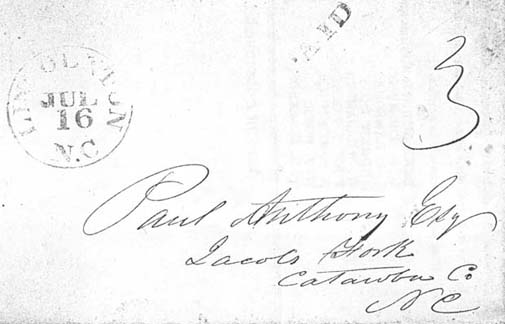 PAID
3
LINCOLNTON
JUL
16
N.C
Paul Anthony Esq
Jacobs Fork
Catawba Co
NC